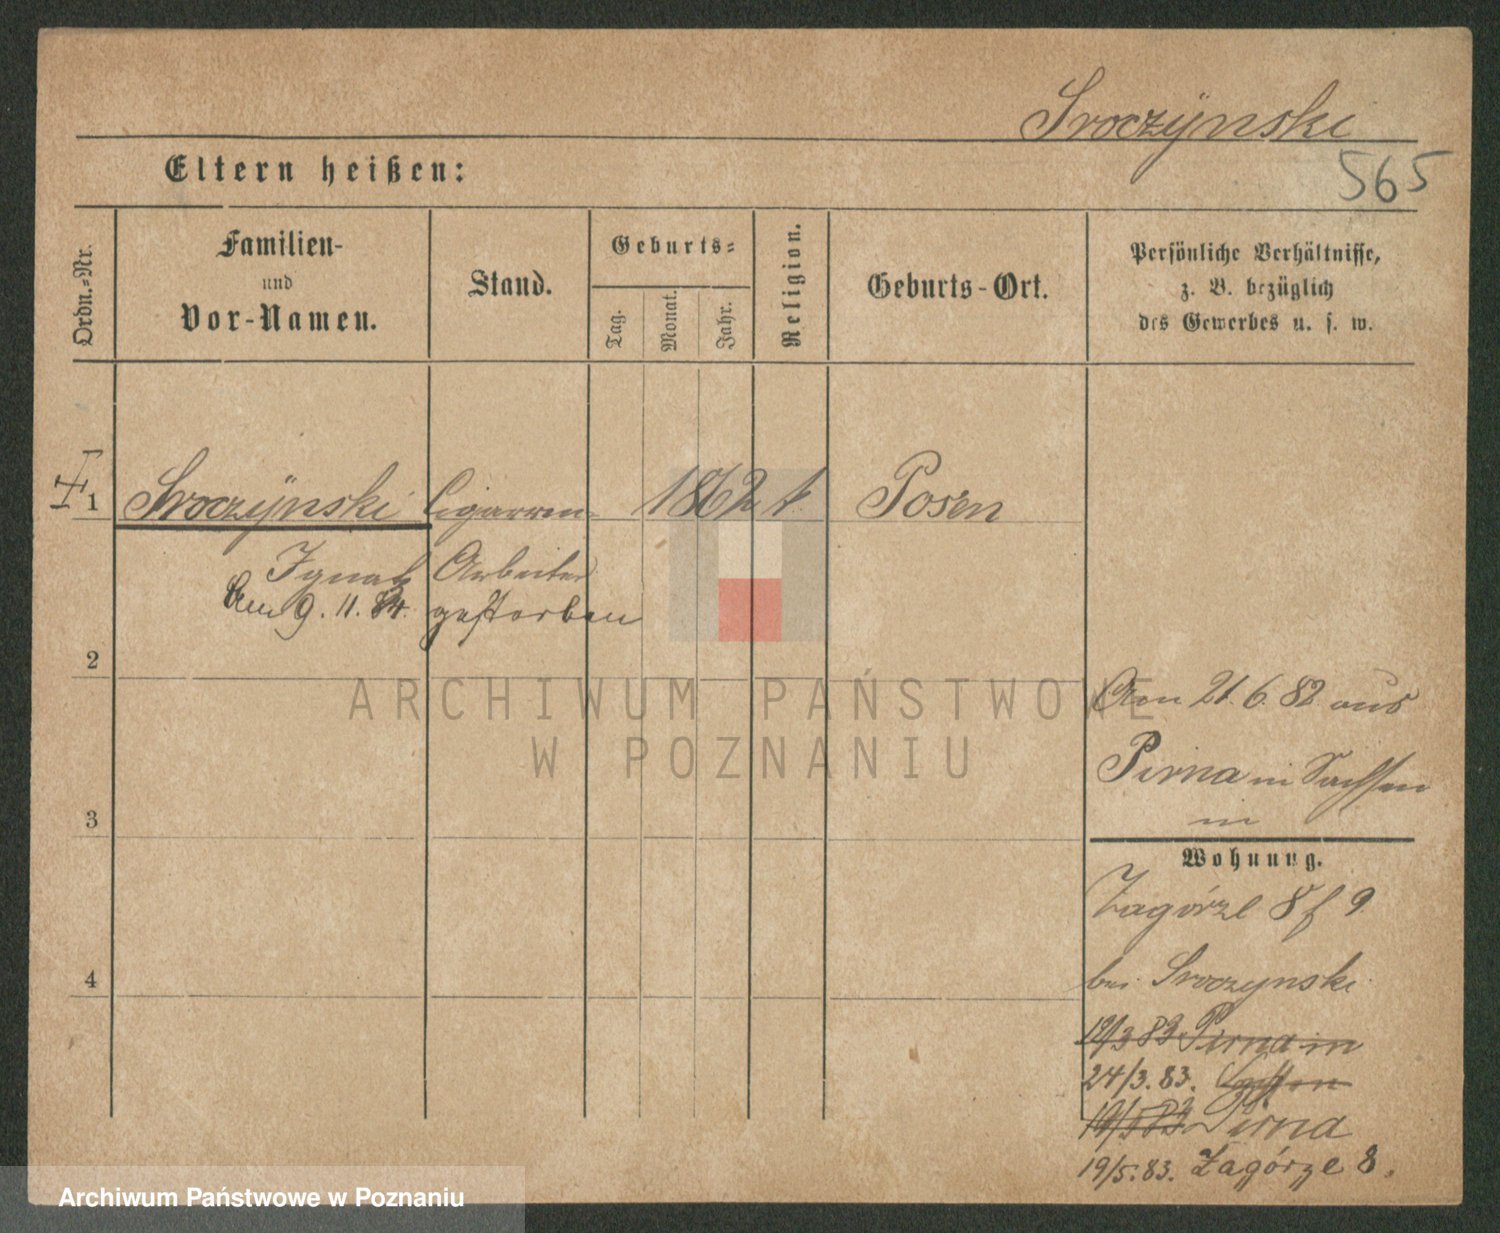 Sroczÿnski
565
Eltern heißen:
Ordn.-Nr.
Familien-
und
Vor-Namen.
Stand.
Geburts-
Tag.
Monat.
Jahr.
Religion.
Geburts-Ort.
Persönliche Verhältnisse,
z. B. bezüglich
des Gewerbes u. s. w.
1 Sroczÿnski Cigarren- 1862 k. Posen
Ignatz Arbeiter
Am 9. 11. 84. gestorben
2
Am 21. 6. 82 aus
Pirna in Sachsen
in
3
Wohnung.
Zagórze 8 f 9
bei Sroczynski
4
12/3 83 Pirna in
24/3. 83. Sachsen
Pirna
19/5. 83. Zagórze 8.
ARCHIWUM PAŃSTWOWE
W POZNANIU
Archiwum Państwowe w Poznaniu